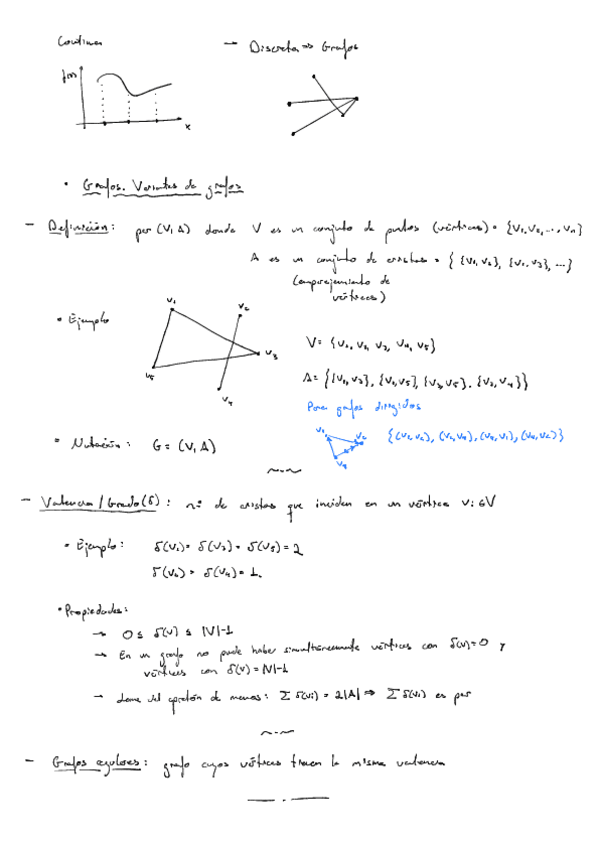 Continua — Discreta ⇒ Grafos
f(x)
x
• Grafos. Variantes de grafos
— Definición: par (V, A) donde V es un conjunto de puntos (vértices) = {V₁, V₂, ..., Vₙ}
A es un conjunto de aristas = { {V₁, V₂}, {V₁, V₃}, ...}
(emparejamiento de
vértices)
• Ejemplo
V₁
V₂
V₃
V₅
V₄
V = {V₁, V₂, V₃, V₄, V₅}
A = {{V₁, V₃}, {V₁, V₅}, {V₃, V₅}, {V₂, V₄}}
Para grafos dirigidos
• Notación: G = (V, A)
— Valencia / Grado (δ): nº de aristas que inciden en un vértice Vi ∈ V
• Ejemplo: δ(V₁) = δ(V₃) = δ(V₅) = 2
δ(V₂) = δ(V₄) = 1.
• Propiedades:
→ 0 ≤ δ(V) ≤ |V|-1
→ En un grafo no puede haber simultáneamente vértices con δ(V) = 0 y
vértices con δ(V) = |V|-1
→ Lema del apretón de manos: Σ δ(Vi) = 2|A| ⇒ Σ δ(Vi) es par
— Grafos regulares: grafo cuyos vértices tienen la misma valencia